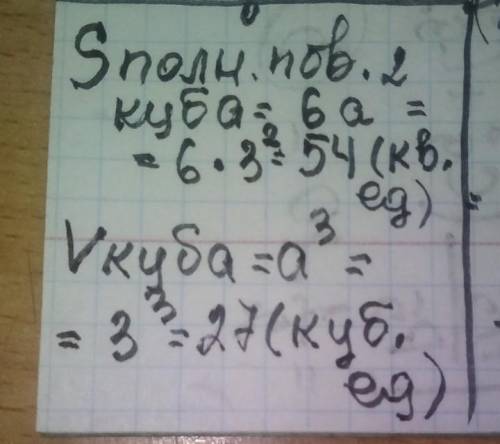 Sполн. пов.
куба = 6a² =
= 6 · 3² = 54 (кв.
ед)
Vкуба = a³ =
= 3³ = 27 (куб.
ед)